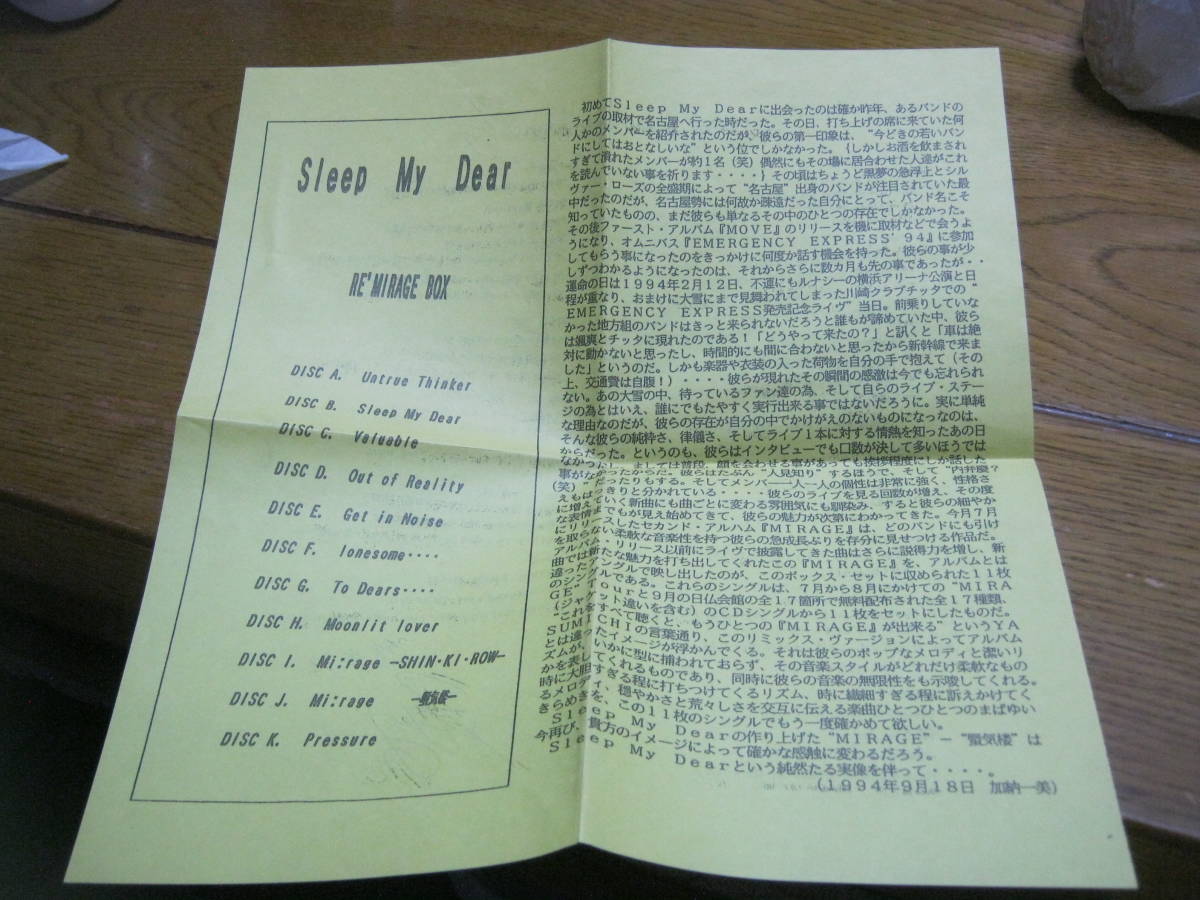 Sleep My Dear
RE'MIRAGE BOX
DISC A. Untrue Thinker
DISC B. Sleep My Dear
DISC C. Valuable
DISC D. Out of Reality
DISC E. Get in Noise
DISC F. lonesome････
DISC G. To Dears････
DISC H. Moonlit lover
DISC I. Mi:rage —SHIN･KI･ROW—
DISC J. Mi:rage —蜃気楼—
DISC K. Pressure
初めてSleep My Dearに出会ったのは確か昨年、あるバンドの
ライブの取材で名古屋へ行った時だった。その日、打ち上げの席に来ていた何
人かのメンバーを紹介されたのだが、彼らの第一印象は、“今どきの若いバン
ドにしてはおとなしいな”という位でしかなかった。{しかしお酒を飲まされ
すぎて潰れたメンバーが約1名(笑)偶然にもその場に居合わせた人達がこれ
を読んでいない事を祈ります････}その頃はちょうど黒夢の急浮上とシル
ヴァー・ローズの全盛期によって“名古屋”出身のバンドが注目されていた最
中だったのだが、名古屋勢には何故か疎遠だった自分にとって、バンド名こそ
知っていたものの、まだ彼らも単なるその中のひとつの存在でしかなかった。
その後ファースト・アルバム『MOVE』のリリースを機に取材などで会うよ
うになり、オムニバス『EMERGENCY EXPRESS'94』に参加
してもらう事になったのをきっかけに何度か話す機会を持った。彼らの事が少
しずつわかるようになったのは、それからさらに数カ月も先の事であったが・・
運命の日は1994年2月12日、不運にもルナシーの横浜アリーナ公演と日
程が重なり、おまけに大雪にまで見舞われてしまった川崎クラブチッタでの“
EMERGENCY EXPRESS発売記念ライヴ”当日。前乗りしていな
かった地方組のバンドはきっと来られないだろうと誰もが諦めていた中、彼ら
は颯爽とチッタに現れたのである!「どうやって来たの?」と訊くと「車は絶
対に動かないと思ったし、時間的にも間に合わないと思ったから新幹線で来ま
した」というのだ。しかも楽器や衣装の入った荷物を自分の手で抱えて(その
上、交通費は自腹!)････彼らが現れたその瞬間の感激は今でも忘れられ
ない。あの大雪の中、待っているファン達の為、そして自らのライブ・ステー
ジの為とはいえ、誰にでもたやすく実行出来る事ではないだろうに。実に単純
な理由なのだが、彼らの存在が自分の中でかけがえのないものになっなのは、
そんな彼らの純粋さ、律儀さ、そしてライブ1本に対する情熱を知ったあの日
からだった。というのも、彼らはインタビューでも口数が決して多いほうでは
なかったし、ましては普段、顔を会わせる事があっても挨拶程度にしか話した
事がなかったからだ。彼らはたぶん“人見知り”するほうで、そして“内弁慶?
(笑)”だったりもする。そしてメンバー一人一人の個性は非常に強く、性格さ
えもはっきりと分かれている････彼らのライブを見る回数が増え、その度
に増えていく新曲にも曲ごとに変わる雰囲気にも馴染み、すると彼らの細やか
な表情までもが見え始めてきて、彼らの魅力が次第にわかってきた。今月7月
にリリースしたセカンド・アルバム『MIRAGE』は、どのバンドにも引け
を取らない柔軟な音楽性を持つ彼らの急成長ぶりを存分に見せつける作品だ。
アルバム・リリース以前にライヴで披露してきた曲はさらに説得力を増し、新
曲では新たな魅力を打ち出してくれたこの『MIRAGE』を、アルバムとは
違ったアングルで映し出したのが、このボックス・セットに収められた11枚
のシングルである。これらのシングルは、7月から8月にかけての“MIRA
GE Tourと9月の日仏会館の全17箇所で無料配布された全17種類、
(ジャケット違いを含む)のCDシングルから11枚をセットにしたものだ。
“これをすべて聴くと、もうひとつの『MIRAGE』が出来る”というYA
SUMICHIの言葉通り、このリミックス・ヴァージョンによってアルバム
とは違ったイメージが浮かんでくる。それは彼らのポップなメロディと潔いリ
ズムが、いかに型に捕われておらず、その音楽スタイルがどれだけ柔軟なもの
かを表してくれるものであり、同時に彼らの音楽の無限性をも示唆してくれる。
時に大胆すぎる程に打ちつけてくるリズム、時に繊細すぎる程に訴えかけてく
るメロディ、穏やかさと荒々しさを交互に伝える楽曲ひとつひとつのまばゆい
きらめきを、この11枚のシングルでもう一度確かめて欲しい。
Sleep My Dearの作り上げた“MIRAGE”－“蜃気楼”は
今再び、貴方のイメージによって確かな感触に変わるだろう。
Sleep My Dearという純然たる実像を伴って････。
(1994年9月18日 加納一美)